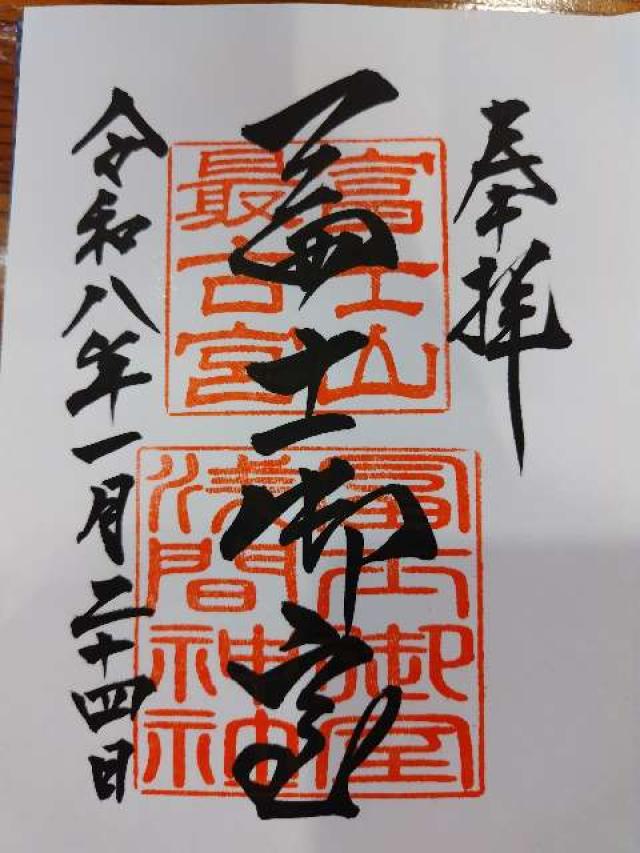 奉拝
富士山
最古宮
冨士御室
冨士御室
浅間神社
令和八年一月二十四日